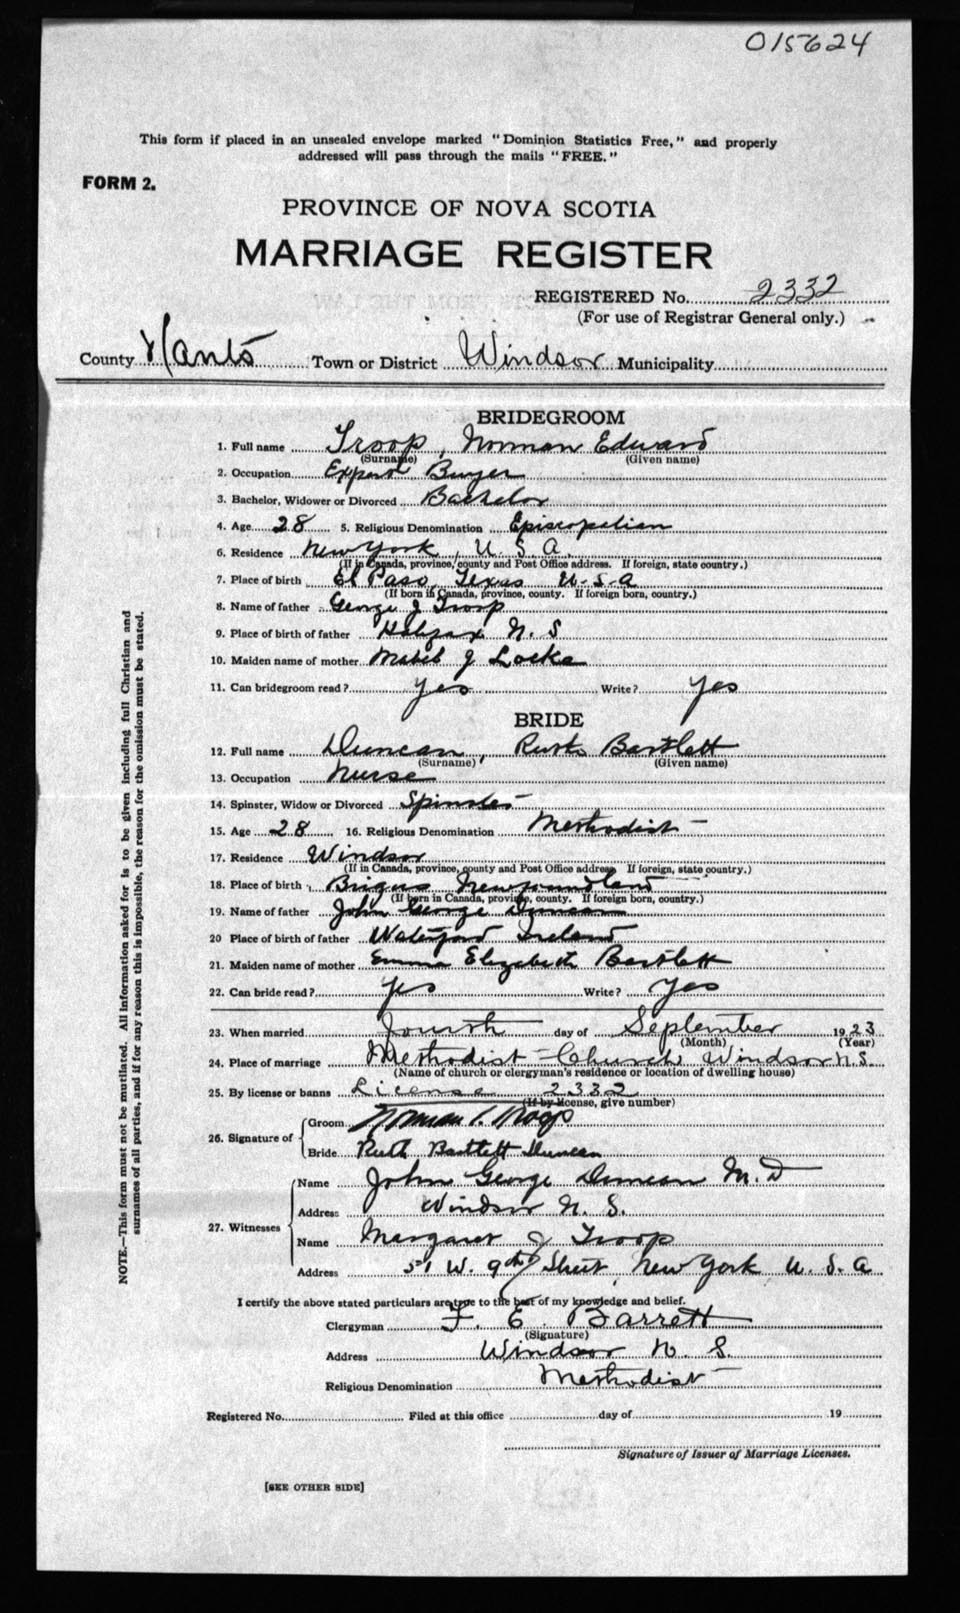 015624
This form if placed in an unsealed envelope marked "Dominion Statistics Free," and properly
addressed will pass through the mails "FREE."
FORM 2.
PROVINCE OF NOVA SCOTIA
MARRIAGE REGISTER
REGISTERED No. 2332
(For use of Registrar General only.)
County Hants Town or District Windsor Municipality
BRIDEGROOM
1. Full name Troop, Norman Edward
(Surname) (Given name)
2. Occupation Export Buyer
3. Bachelor, Widower or Divorced Bachelor
4. Age 28 5. Religious Denomination Episcopalian
6. Residence New York, U.S.A.
(If in Canada, province, county and Post Office address. If foreign, state country.)
7. Place of birth El Paso, Texas U.S.A
(If born in Canada, province, county. If foreign born, country.)
8. Name of father George J Troop
9. Place of birth of father Halifax N.S
10. Maiden name of mother Mabel J Locke
11. Can bridegroom read? Yes Write? Yes
BRIDE
12. Full name Duncan, Ruth Bartlett
(Surname) (Given name)
13. Occupation Nurse
14. Spinster, Widow or Divorced Spinster
15. Age 28 16. Religious Denomination Methodist
17. Residence Windsor
(If in Canada, province, county and Post Office address. If foreign, state country.)
18. Place of birth Brigus Newfoundland
(If born in Canada, province, county. If foreign born, country.)
19. Name of father John George Duncan
20 Place of birth of father Waterford Ireland
21. Maiden name of mother Emma Elizabeth Bartlett
22. Can bride read? Yes Write? Yes
23. When married Fourth day of September 1923
(Month) (Year)
24. Place of marriage Methodist Church Windsor N.S.
(Name of church or clergyman's residence or location of dwelling house)
25. By license or banns License 2332
(If by license, give number)
26. Signature of
Groom Norman E. Troop
Bride Ruth Bartlett Duncan
27. Witnesses
Name John George Duncan M.D
Address Windsor N.S.
Name Margaret J Troop
Address 51 W. 9th Street, New York U.S.A
I certify the above stated particulars are true to the best of my knowledge and belief.
Clergyman F. E. Barrett
(Signature)
Address Windsor N.S.
Religious Denomination Methodist
Registered No. Filed at this office day of 19
Signature of Issuer of Marriage Licenses.
[SEE OTHER SIDE]
NOTE.—This form must not be mutilated. All information asked for is to be given including full Christian and
surnames of all parties, and if for any reason this is impossible, the reason for the omission must be stated.